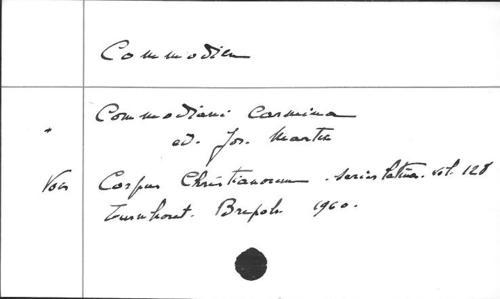 Commodien
" Commodiani Carmina
ed. Jos. Martin
Voir Corpus Christianorum. series latina. vol. 128
Turnhout. Brepols 1960.